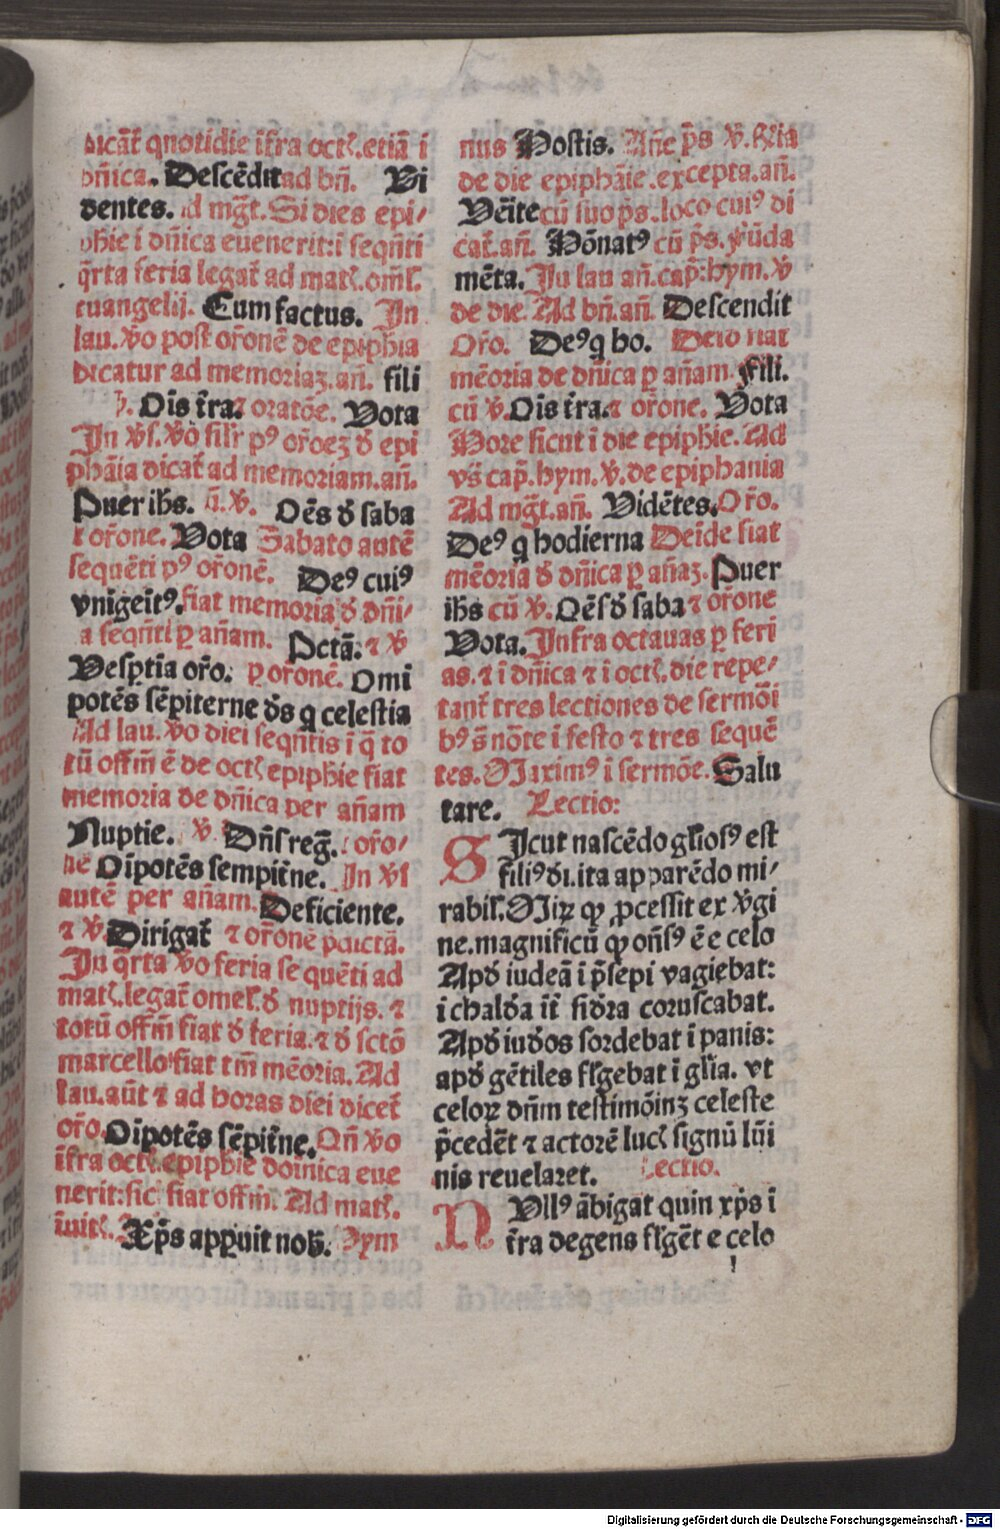 dicat̃ quotidie ĩfra oct̃.etiã i
dñica. Descẽdit ad bñ. Vi
dentes. ad mg̃t. Si dies epi/
phie i dñica euenerit: i seqñti
q̃rta feria legat̃ ad mat̃. oml̃.
euangelij. Cum factus. In
lau. ꝟo post or̃onẽ de epiphia
dicatur ad memoriaꝫ. añ. fili
ꝟ. Oĩs t̃ra. ⁊ oratõe. Vota
In ꝟs. ꝟo sil̃r pꝰ or̃oeꝫ ꝺ̃ epi
phãia dicat̃ ad memoriam. añ.
Puer ih̃s. ñ. ꝟ. Oẽs ꝺ̃ saba
⁊ or̃one. Vota Sabato autẽ
sequẽti pꝰ or̃onẽ. Deꝰ cuiꝰ
vnigeit̃ꝰ. fiat memoria ꝺ̃ dñi/
a seqñti ꝑ añam. Pctã: ⁊ ꝟ
Vesꝑtĩa or̃o: ꝑ or̃onẽ. Omi
potẽs sẽpiterne ꝺ̃s q̃ celestia
Ad lau. ꝟo diei seqñtis i q̃ to
tũ offm̃ ẽ de oct̃ epiphie fiat
memoria de dñica per añam
Nuptie. ꝟ. Dñs reg̃. or̃o/
nẽ Oĩpotẽs sempit̃ne. In ꝟs
autẽ per añam. Deficiente.
⁊ ꝟ. Dirigat̃ ⁊ or̃onẽ p̃dictã.
In q̃rta ꝟo feria sequẽti ad
mat̃. legat̃ omel̃. ꝺ̃ nuptijs. ⁊
totũ offm̃ fiat ꝺ̃ feria. ⁊ ꝺ̃ sctõ
marcello fiat tm̃ mẽoria. Ad
lau. aũt ⁊ ad horas diei dicet̃
or̃o. Oĩpotẽs sẽpit̃ne. Qñ ꝟo
ĩfra oct̃. epiphie doĩnica eue
nerit: sic fiat offm̃. Ad mat̃.
ĩuit̃. Xp̃s apꝑuit nob̃. Hym
nus Hostis. Añe p̃s ꝟ. Rña
de die epiphãie. excepta. añ.
Veĩte cũ suo p̃s. loco cuiꝰ di
cat̃. añ. Hõnatꝰ cũ p̃s. Fũda
mẽta. In lau añ. cap̃: hym. ꝟ
de die. Ad bñ. añ. Descendit
Or̃o. Deꝰ q̃ ho. Deĩd fiat
mẽoria de dñica ꝑ añam. Fili.
cũ ꝟ. Oĩs t̃ra. ⁊ or̃one. Vota
Hore sicut i die epiphie. Ad
vs̃ cap̃. hym. ꝟ. de epiphania
Ad mg̃t. añ. Vidẽtes. Or̃o.
Deꝰ q̃ hodierna Deĩde fiat
mẽoria ꝺ̃ dñica ꝑ añaꝫ. Puer
ih̃s cũ ꝟ. Oẽs ꝺ̃ saba ⁊ or̃one
Vota. Infra octauas ꝑ feri
as. ⁊ i dñica ⁊ i oct̃. die repe/
tant̃ tres lectiones de sermõi
bꝰ s̃ nõte i festo ⁊ tres sequẽ
tes. Maximꝰ i sermõe. Salu
tare. Lectio:
SIcut nascẽdo gl̃iosꝰ est
filiꝰ ꝺ̃i. ita apparẽdo mi/
rabil̃. Miꝝ qꝫ ꝓcessit ex ꝟgi
ne. magnificũ qꝫ oñsꝰ ẽ e celo
Apꝺ̃ iudeã i p̃sepi vagiebat:
i chalꝺ̃a it̃ siꝺ̃ra coruscabat.
Apꝺ̃ iuꝺ̃os sordebat i panis:
apꝺ̃ gẽtiles fl̃gebat i gl̃ia. vt
celoꝝ dñm testimõiuꝫ celeste
p̃cedẽt ⁊ actorẽ luc̃ signũ lũi
nis reuelaret. Lectio.
NVllꝰ ãbigat quin xp̃s i
t̃ra degens fl̃gẽt e celo
Digitalisierung gefördert durch die Deutsche Forschungsgemeinschaft - DFG